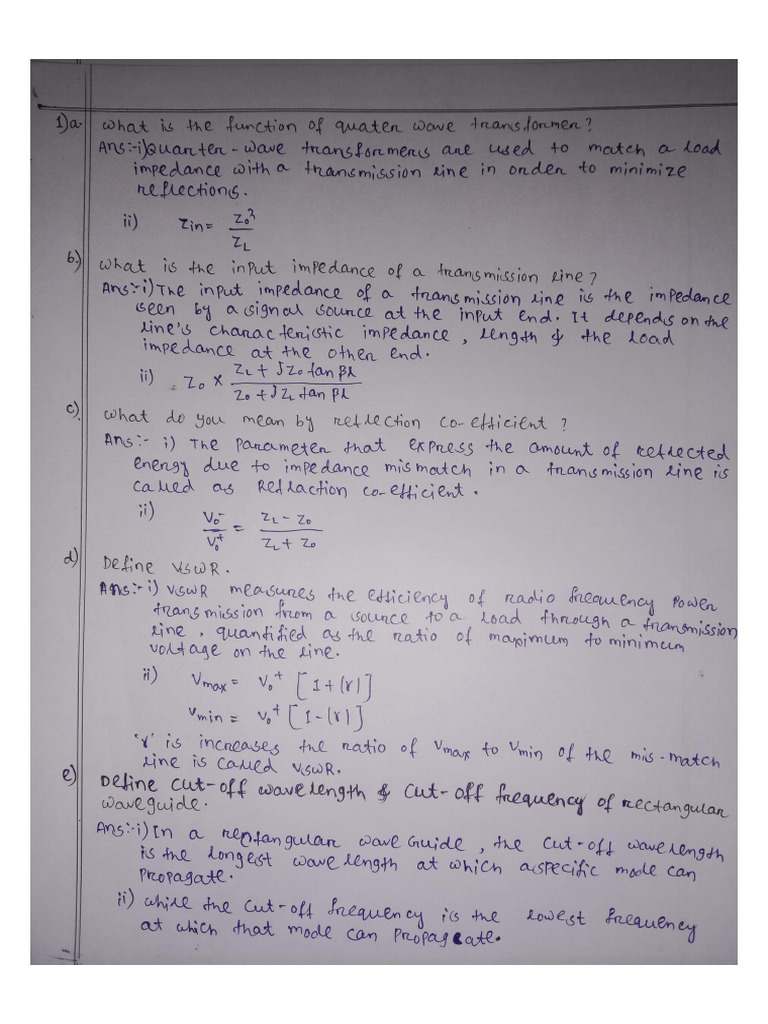 1)a. What is the function of quater wave transformer?
Ans:-i)Quarter-wave transformers are used to match a load
impedance with a transmission line in order to minimize
reflections.
ii) Zin = Z₀² / Z_L
b.) What is the input impedance of a transmission line?
Ans:-i) The input impedance of a transmission line is the impedance
seen by a signal source at the input end. It depends on the
line's characteristic impedance, length & the load
impedance at the other end.
ii) Z₀ × (Z_L + JZ₀ tan βl) / (Z₀ + JZ_L tan βl)
c). What do you mean by reflection co-efficient ?
Ans:- i) The parameter that express the amount of reflected
energy due to impedance mismatch in a transmission line is
called as Reflaction co-efficient.
ii) V₀⁻ / V₀⁺ = (Z_L - Z₀) / (Z_L + Z₀)
d) Define VSWR.
Ans:-i) VSWR measures the efficiency of radio frequency power
transmission from a source to a load through a transmission
line, quantified as the ratio of maximum to minimum
voltage on the line.
ii) Vmax = V₀⁺ [1+(r|]
Vmin = V₀⁺ [1-(r|]
'r' is increases the ratio of Vmax to Vmin of the mis-match
line is called VSWR.
e) Define cut-off wavelength & cut-off frequency of rectangular
waveguide.
Ans:-i) In a rectangular wave Guide, the cut-off wavelength
is the longest wavelength at which a specific mode can
propagate.
ii) while the cut-off frequency is the lowest frequency
at which that mode can propagate.